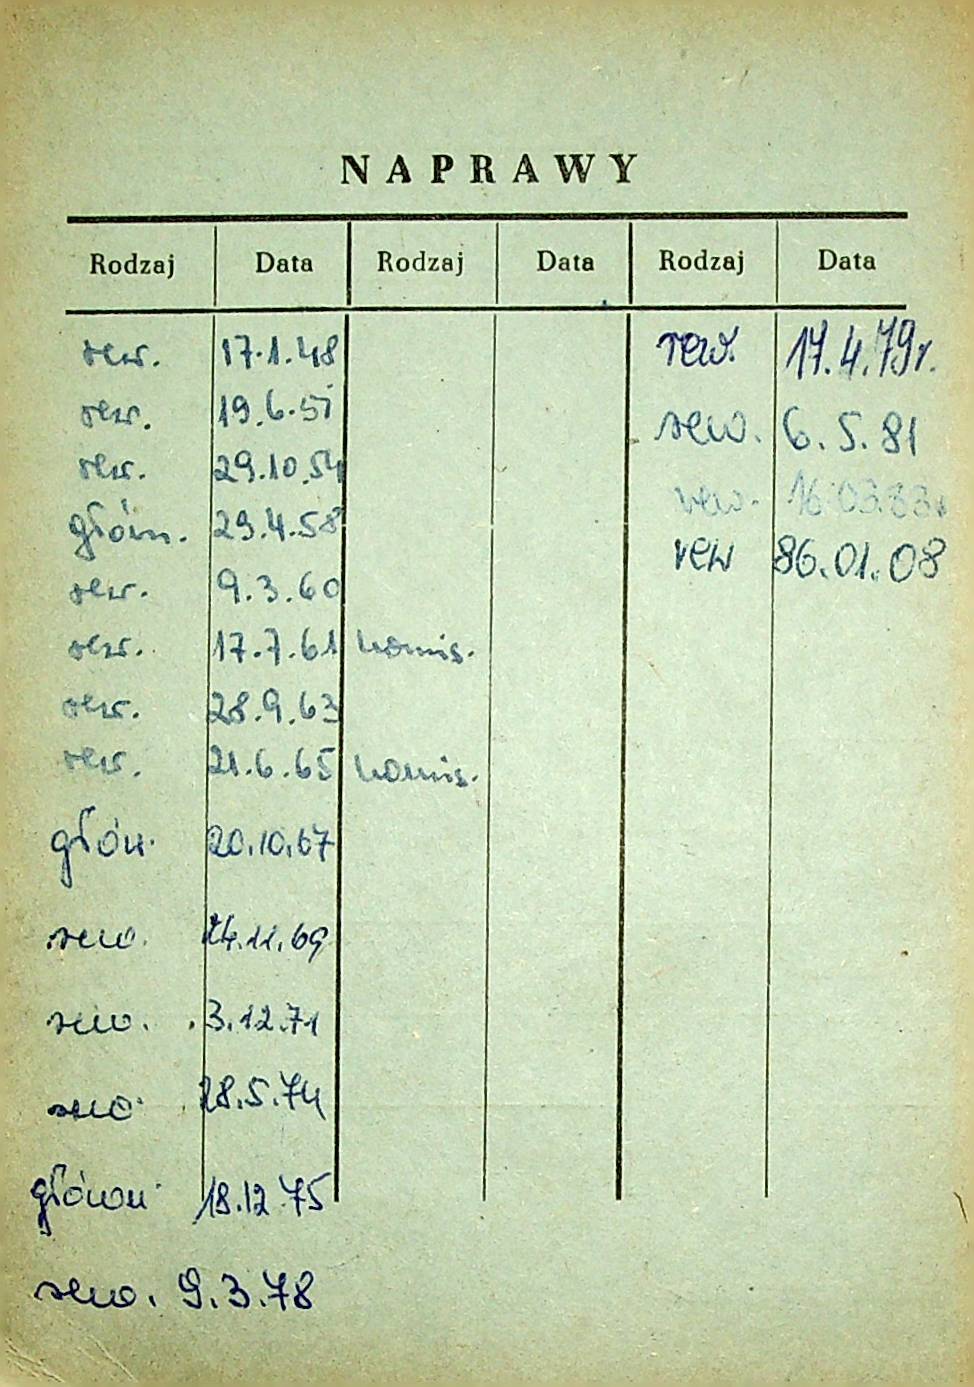 NAPRAWY
Rodzaj Data Rodzaj Data Rodzaj Data
rew. 17.1.48
rew. 19.6.51
rew. 29.10.54
główn. 29.4.58
rew. 9.3.60
rew. 17.7.61 komis.
rew. 28.9.63
rew. 21.6.65 komis.
głów. 20.10.67
rew. 24.11.69
rew. 3.12.71
rew. 28.5.74
główn. 18.12.75
rew. 9.3.78
rew. 17.4.79r.
rew. 6.5.81
rew. 16.03.83r
rew 86.01.08